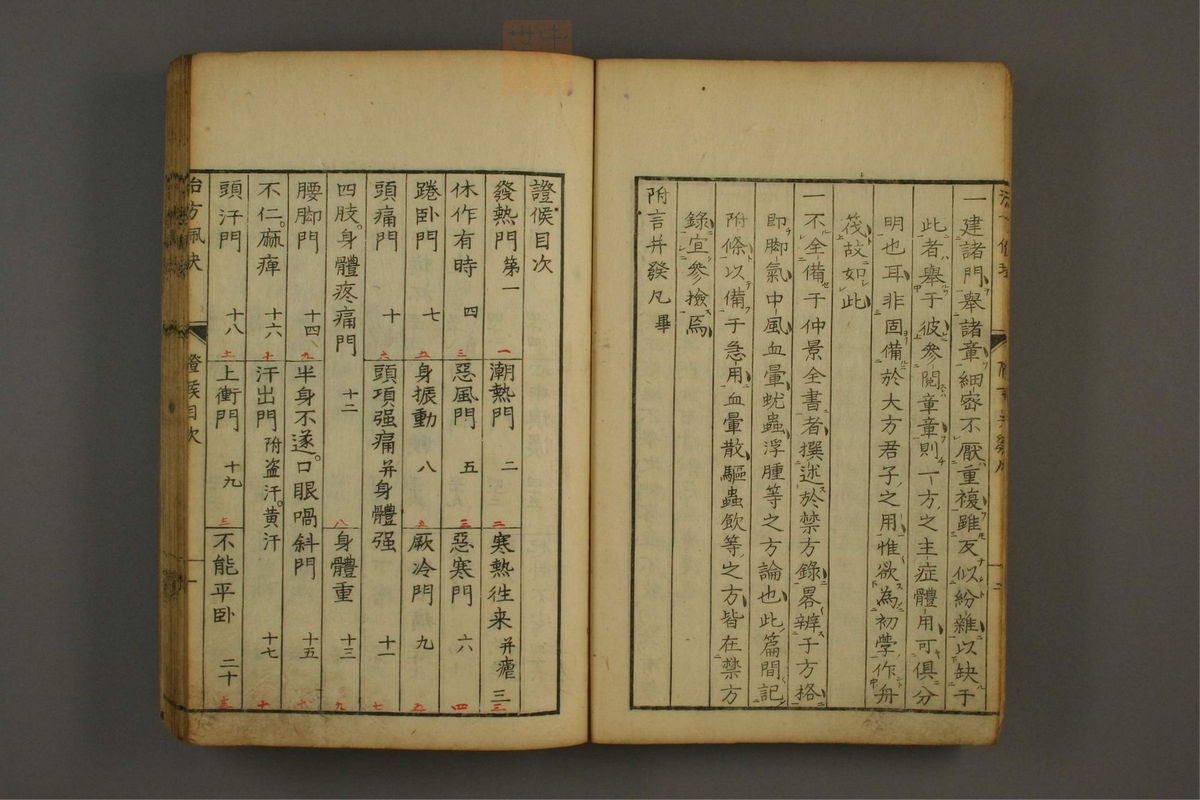 一建諸門舉諸章細密不厭重複雖反似紛雜以缺于
此者舉于彼參閱章章則一方之主症體用可俱分
明也耳非固備於大方君子之用惟欲為初學作舟
筏故如此
一不全備于仲景全書者撰述於禁方錄畧辨于方格
即脚氣中風血暈蚘蟲浮腫等之方論也此篇間記
附條以備于急用血暈散驅蟲飲等之方皆在禁方
錄宜參撿焉
附言并發凡畢
證候目次
發熱門 第一 一 潮熱門 二 二 寒熱徃来 并瘧 三 三
休作有時 四 三 惡風門 五 三 惡寒門 六 四
踡卧門 七 五 身振動 八 五 厥冷門 九 五
頭痛門 十 六 頭項强痛 并身體强 十一 七
四肢。身體疼痛門 十二 八 身體重 十三 九
腰脚門 十四 九 半身不遂。口眼喎斜門 十五 十
不仁。麻痺 十六 十 汗出門 附盗汗。黄汗 十七 十
頭汗門 十八 土 上衝門 十九 三 不能平卧 二十
證候目次